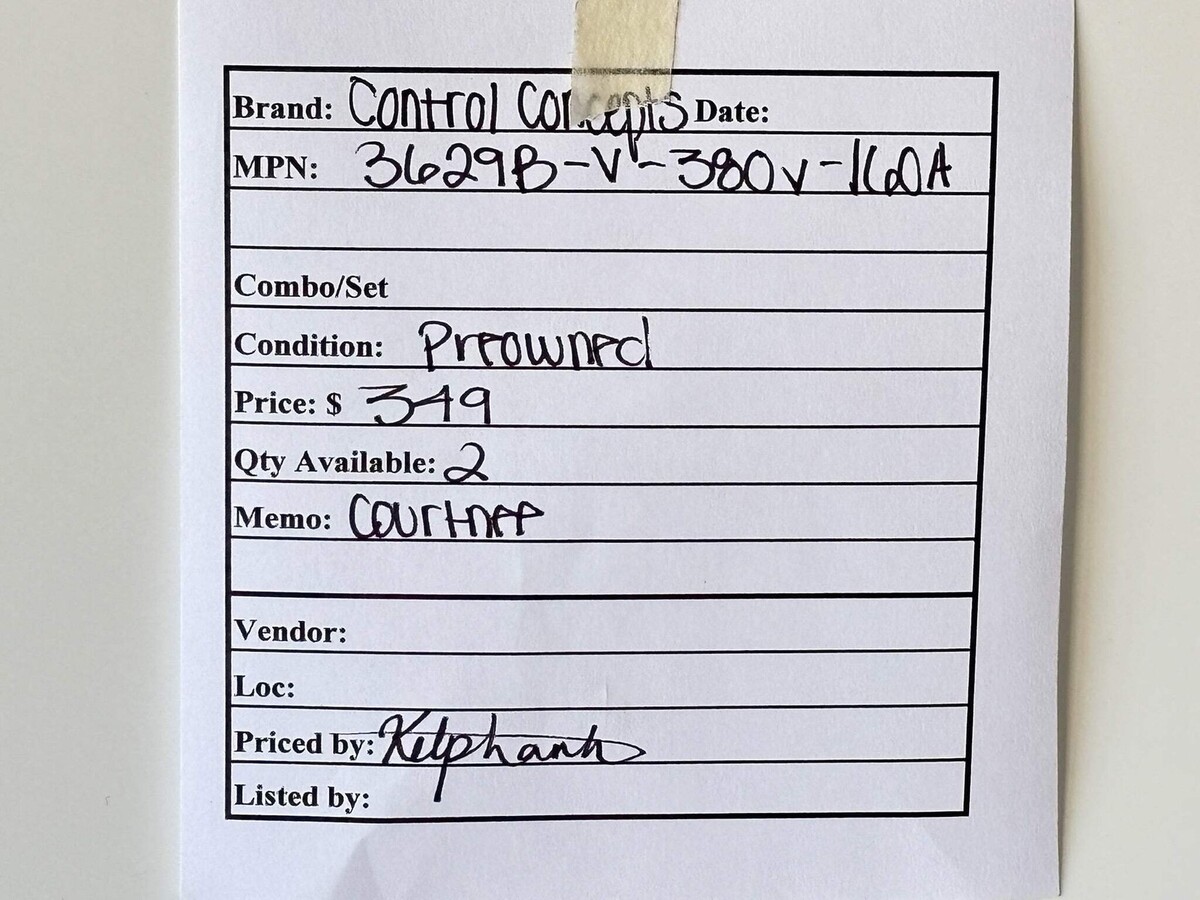 Brand: Control Concepts Date:
MPN: 3629B-V-380V-160A
Combo/Set
Condition: Preowned
Price: $ 349
Qty Available: 2
Memo: Courtnee
Vendor:
Loc:
Priced by:
Listed by: